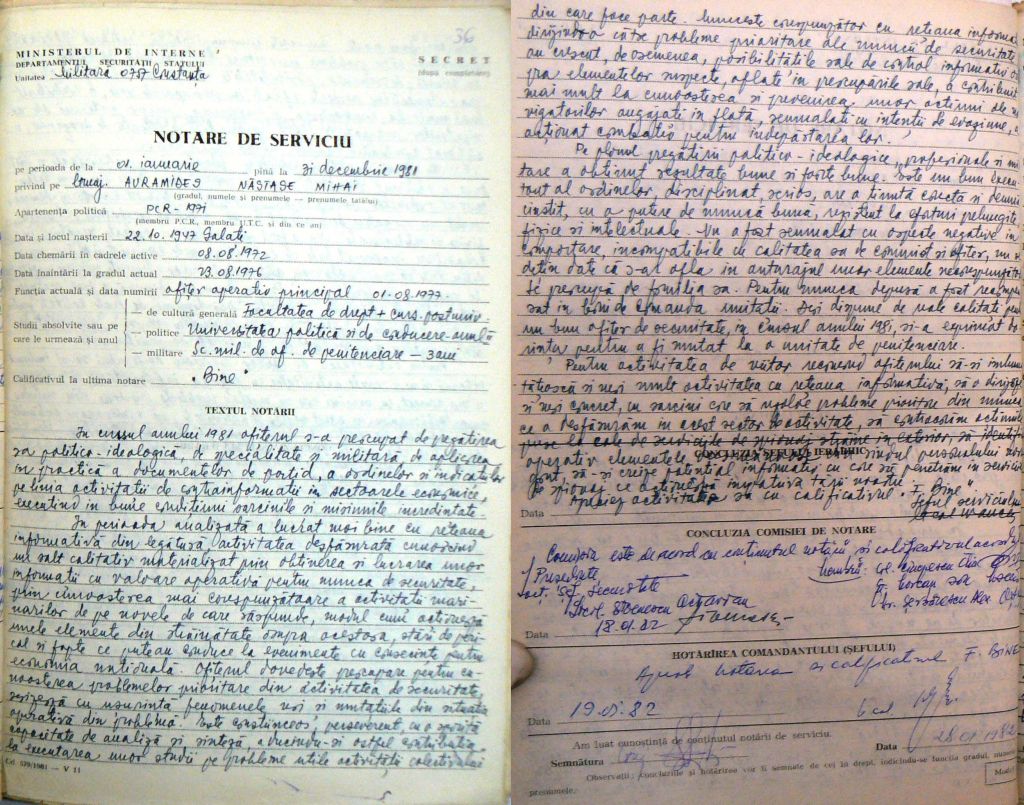 36
MINISTERUL DE INTERNE
DEPARTAMENTUL SECURITĂȚII STATULUI
Unitatea Militară 0757 Constanța
SECRET
(după completare)
NOTARE DE SERVICIU
pe perioada de la 01. ianuarie pînă la 31 decembrie 1981
privind pe AVRAMIDES NĂSTASE MIHAI
(gradul, numele și prenumele — prenumele tatălui)
Apartenența politică PCR - 1971
(membru P.C.R., membru U.T.C. și din ce an)
Data și locul nașterii 22.10.1947 Galați
Data chemării în cadrele active 08.08.1972
Data înaintării la gradul actual 23.08.1976
Funcția actuală și data numirii ofițer operativ principal 01.08.1977.
Studii absolvite sau pe care le urmează și anul
— de cultură generală Facultatea de drept + curs postuniv.
— politice Universitatea politică și de conducere anul
— militare Sc. mil. de of. de penitenciare — 3 ani
Calificativul la ultima notare „Bine"
TEXTUL NOTĂRII
În cursul anului 1981 ofițerul s-a preocupat de pregătirea
sa politico-ideologică, de specialitate și militară, de aplicarea
în practică a documentelor de partid, a ordinelor și indicațiilor
pe linia activității de contrainformații în sectoarele economice,
executînd în bune condițiuni sarcinile și misiunile încredințate.
În perioada analizată a lucrat mai bine cu rețeaua
informativă din legătură, activitatea desfășurată cunoscînd
un salt calitativ materializat prin obținerea și lucrarea unor
informații cu valoare operativă pentru munca de securitate,
prin cunoașterea mai corespunzătoare a activității mari-
narilor de pe navele de care răspunde, modul cum acționează
unele elemente din străinătate asupra acestora, stări de peri-
col și fapte ce puteau conduce la evenimente cu consecințe pentru
economia națională. Ofițerul dovedește preocupare pentru cu-
noașterea problemelor prioritare din activitatea de securitate,
sesizează cu ușurință fenomenele noi și mutațiile din situația
operativă din problemă. Este conștiincios, perseverent, cu o sporită
capacitate de analiză și sinteză, aducîndu-și astfel contribuția
la executarea unor studii pe probleme utile activității colectivului
Cd. 579/1981 — V 11
din care face parte. Muncește corespunzător cu rețeaua informa
dirijînd-o către probleme prioritare ale muncii de securitate
au crescut, de asemenea, posibilitățile sale de control informativ
pra elementelor suspecte, aflate în preocupările sale, a contribuit
mai mult la cunoașterea și prevenirea unor acțiuni ale na
vigatorilor angajați în flotă, semnalați cu intenții de evaziune,
acționat combativ pentru îndepărtarea lor.
Pe planul pregătirii politico-ideologice, profesionale și mi
tare a obținut rezultate bune și foarte bune. Este un bun execu
tant al ordinelor, disciplinat, serios, are o ținută corectă și demnă
cinstit, cu o putere de muncă bună, rezistent la eforturi prelungite
fizice și intelectuale. Nu a fost semnalat cu aspecte negative în
comportare, incompatibile cu calitatea sa de comunist și ofițer, nu
dețin date că s-ar afla în anturajul unor elemente necorespunzăt
Se preocupă de familia sa. Pentru munca depusă a fost recompen
sat în bani de comanda unității. Deși dispune de reale calități pen
un bun ofițer de securitate, în cursul anului 1981, și-a exprimat do
rința pentru a fi mutat la o unitate de penitenciare.
Pentru activitatea de viitor recomand ofițerului să-și îmbună
tățească și mai mult activitatea cu rețeaua informativă, să o dirijeze
și mai concret, cu sarcini care să rezolve probleme prioritare din munca
ce o desfășurăm în acest sector de activitate, să
operativ elementele
CONCLUZIA ȘEFULUI IERARHIC
activitatea sa cu calificativul „F. Bine"
Șeful serviciului
Data
CONCLUZIA COMISIEI DE NOTARE
Comisia este de acord cu conținutul notării și calificativul acordat
Președinte,
Șef securitate
Data 18.01.82
HOTĂRÎREA COMANDANTULUI (ȘEFULUI)
Aprob notarea și calificativul F. BINE
Data 19.01.82
Am luat cunoștință de conținutul notării de serviciu.
Semnătura
Data 28.01.1982
Observații: concluziile și hotărîrea vor fi semnate de cei în drept, indicîndu-se funcția gradul, numele
prenumele.
Model